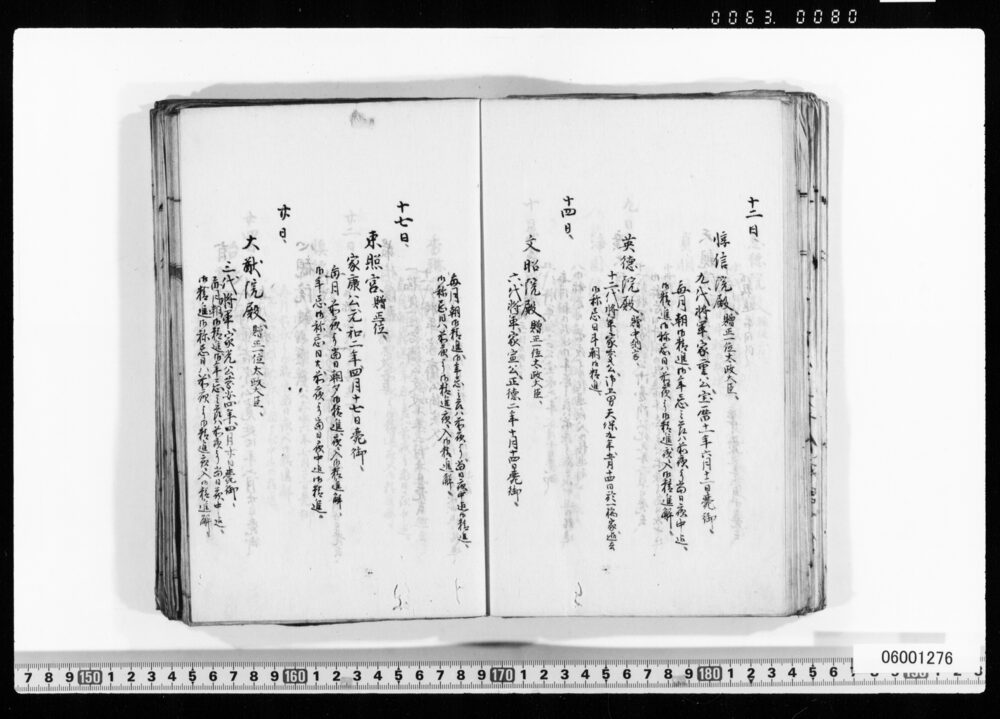 0063. 0080
十二日
惇信院殿、贈正一位太政大臣、
九代将軍家重公、宝暦十一年六月十二日薨御、
毎月朝御精進、御年忌之節ハ前夜より当日夜中迄、
御精進、御祥忌日ハ前夜より御精進、夜入御精進解、
英徳院殿、贈中納言、
十二代将軍家慶公御五男、天保九年
御祥忌日斗朝御精進、
十四日、
文昭院殿、贈正一位太政大臣、
六代将軍家宣公、正徳二年十月十四日薨御、
毎月朝御精進、御年忌之節ハ前夜より当日夜中迄御精進、
御祥忌日ハ前夜より御精進、夜入御精進解、
十七日、
東照宮、贈正一位、
家康公、元和二年四月十七日薨御、
毎月前夜より当日朝夕御精進、夜入御精進解、
御年忌御祥忌日共前夜より当日夜中迄御精進、
廿日、
大猷院殿、贈正一位太政大臣、
三代将軍家光公、慶安四年四月廿日薨御、
毎月朝御精進、御年忌之節ハ前夜より当日夜中迄、
御精進、御祥忌日ハ前夜より御精進、夜入御精進解、
7 8 9 150 1 2 3 4 5 6 7 8 9 160 1 2 3 4 5 6 7 8 9 170 1 2 3 4 5 6 7 8 9 180 1 2 3 4 5 6
06001276